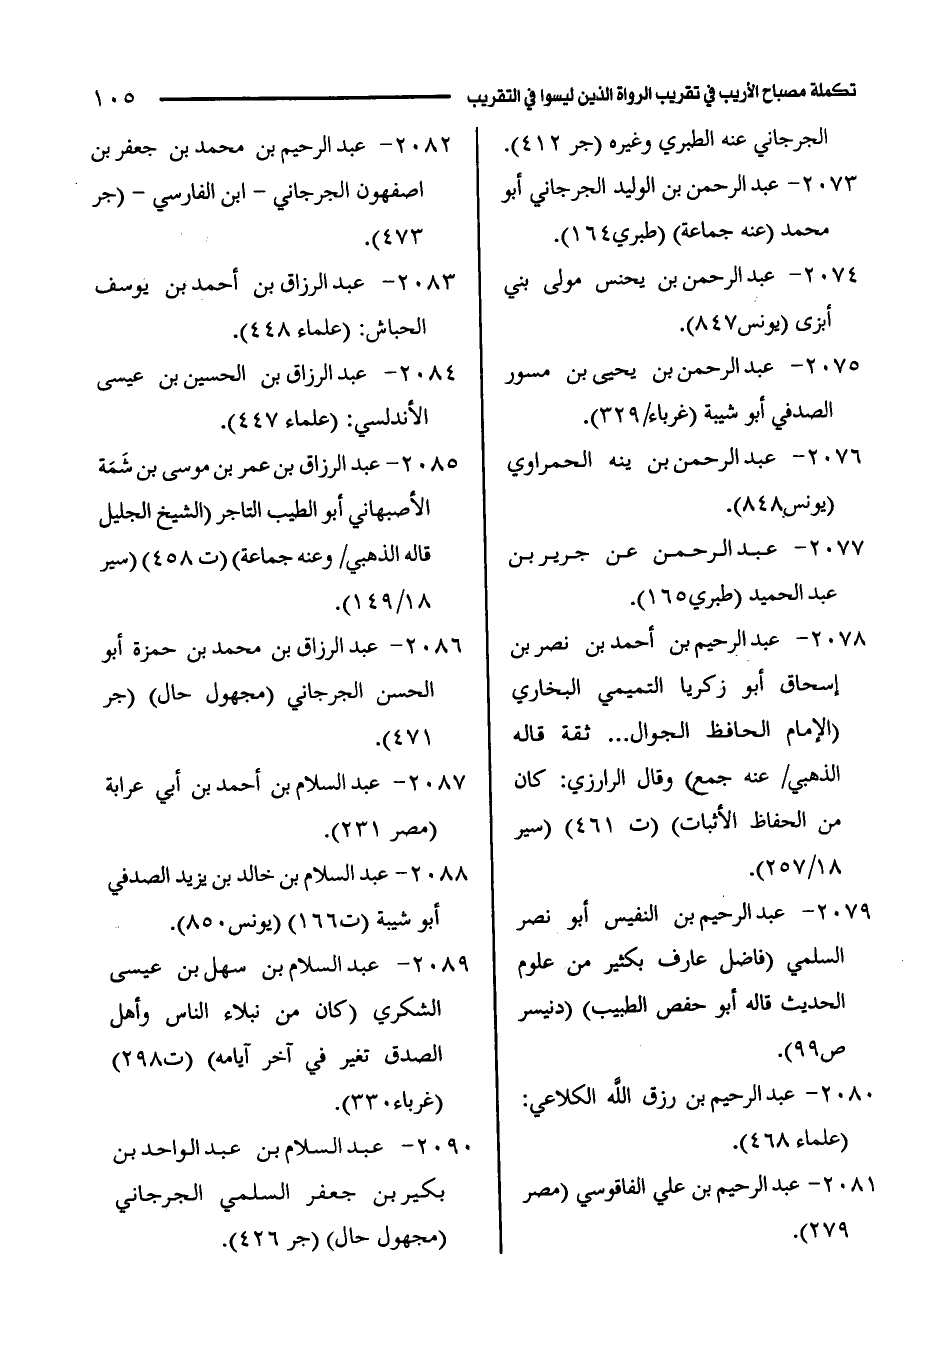 تكملة مصباح الأريب في تقريب الرواة الذين ليسوا في التقريب ١٠٥
الجرجاني عنه الطبري وغيره (جر ٤١٢).
٢٠٧٣- عبد الرحمن بن الوليد الجرجاني أبو
محمد (عنه جماعة) (طبري١٦٤).
٢٠٧٤- عبد الرحمن بن يحنس مولى بني
أبزى (يونس٨٤٧).
٢٠٧٥- عبد الرحمن بن يحيى بن مسور
الصدفي أبو شيبة (غرباء/٣٢٩).
٢٠٧٦- عبد الرحمن بن ينه الحمراوي
(يونس٨٤٨).
٢٠٧٧- عبد الرحمن عن جرير بن
عبد الحميد (طبري١٦٥).
٢٠٧٨- عبد الرحيم بن أحمد بن نصر بن
إسحاق أبو زكريا التميمي البخاري
(الإمام الحافظ الجوال... ثقة قاله
الذهبي/ عنه جمع) وقال الرازي: كان
من الحفاظ الأثبات) (ت ٤٦١) (سير
٢٥٧/١٨).
٢٠٧٩- عبد الرحيم بن النفيس أبو نصر
السلمي (فاضل عارف بكثير من علوم
الحديث قاله أبو حفص الطبيب) (دنيسر
ص٩٩).
٢٠٨٠- عبد الرحيم بن رزق اللَّه الكلاعي:
(علماء ٤٦٨).
٢٠٨١- عبد الرحيم بن علي الفاقوسي (مصر
٢٧٩).
٢٠٨٢- عبد الرحيم بن محمد بن جعفر بن
اصفهون الجرجاني - ابن الفارسي - (جر
٤٧٣).
٢٠٨٣- عبد الرزاق بن أحمد بن يوسف
الحباش: (علماء ٤٤٨).
٢٠٨٤- عبد الرزاق بن الحسين بن عيسى
الأندلسي: (علماء ٤٤٧).
٢٠٨٥- عبد الرزاق بن عمر بن موسى بن شَمَة
الأصبهاني أبو الطيب التاجر (الشيخ الجليل
قاله الذهبي/ وعنه جماعة) (ت ٤٥٨) (سير
١٤٩/١٨).
٢٠٨٦- عبد الرزاق بن محمد بن حمزة أبو
الحسن الجرجاني (مجهول حال) (جر
٤٧١).
٢٠٨٧- عبد السلام بن أحمد بن أبي عرابة
(مصر ٢٣١).
٢٠٨٨- عبد السلام بن خالد بن يزيد الصدفي
أبو شيبة (ت١٦٦) (يونس٨٥٠).
٢٠٨٩- عبد السلام بن سهل بن عيسى
الشكري (كان من نبلاء الناس وأهل
الصدق تغير في آخر آيامه) (ت٢٩٨)
(غرباء٣٣٠).
٢٠٩٠- عبد السلام بن عبد الواحد بن
بكير بن جعفر السلمي الجرجاني
(مجهول حال) (جر ٤٢٦).